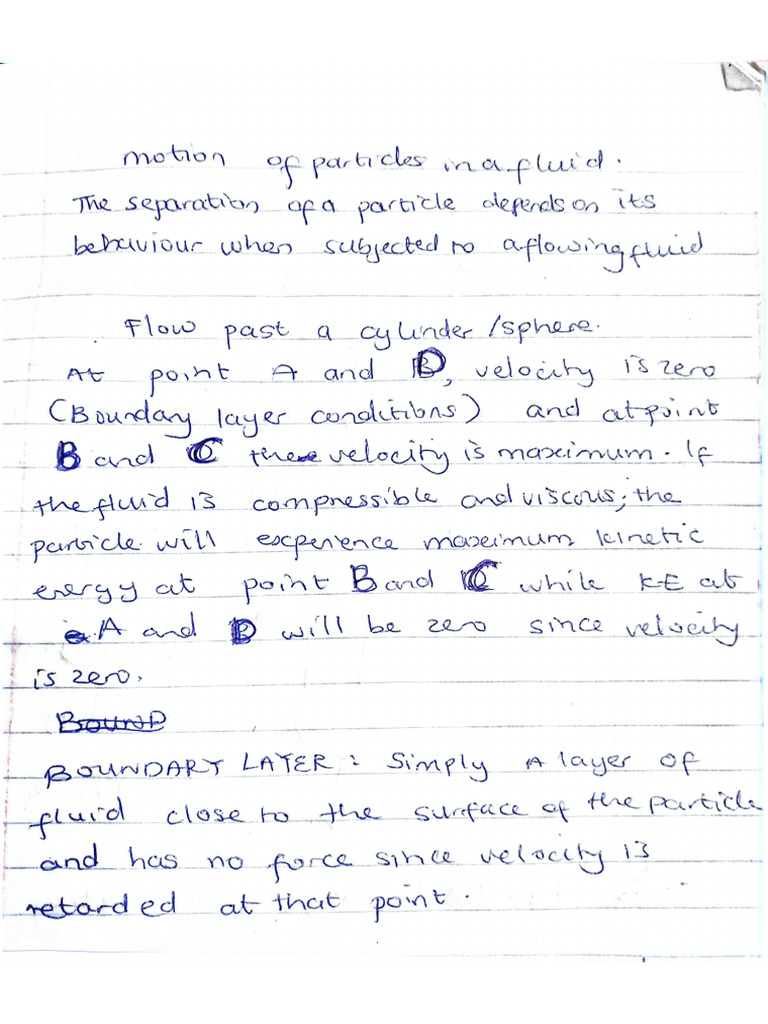 motion of particles in a fluid.
The separation of a particle depends on its
behaviour when subjected to a flowing fluid
Flow past a cylinder/sphere.
At point A and D, velocity is zero
(Boundary layer conditions) and at point
B and C the velocity is maximum. If
the fluid is compressible and viscous, the
particle will experience maximum kinetic
energy at point B and C while KE at
A and D will be zero since velocity
is zero.
BOUNDARY LAYER: Simply A layer of
fluid close to the surface of the particle
and has no force since velocity is
retarded at that point.